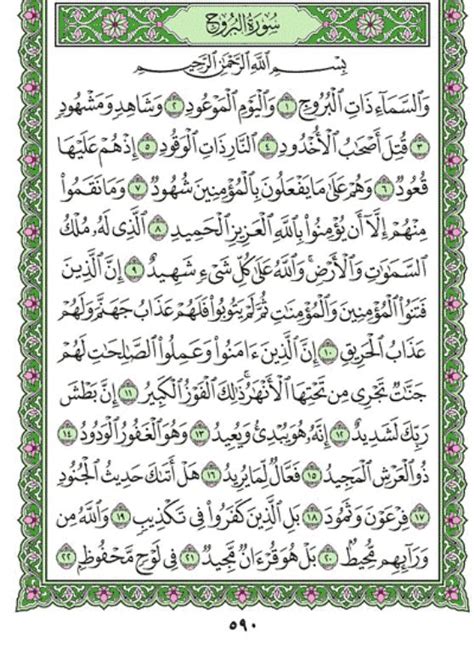 سُورَةُ البُرُوجِ
بِسْمِ ٱللَّهِ ٱلرَّحْمَٰنِ ٱلرَّحِيمِ
وَٱلسَّمَآءِ ذَاتِ ٱلْبُرُوجِ ١ وَٱلْيَوْمِ ٱلْمَوْعُودِ ٢ وَشَاهِدٍ وَمَشْهُودٍ
٣ قُتِلَ أَصْحَٰبُ ٱلْأُخْدُودِ ٤ ٱلنَّارِ ذَاتِ ٱلْوَقُودِ ٥ إِذْ هُمْ عَلَيْهَا
قُعُودٌ ٦ وَهُمْ عَلَىٰ مَا يَفْعَلُونَ بِٱلْمُؤْمِنِينَ شُهُودٌ ٧ وَمَا نَقَمُوا۟
مِنْهُمْ إِلَّآ أَن يُؤْمِنُوا۟ بِٱللَّهِ ٱلْعَزِيزِ ٱلْحَمِيدِ ٨ ٱلَّذِى لَهُۥ مُلْكُ
ٱلسَّمَٰوَٰتِ وَٱلْأَرْضِ ۚ وَٱللَّهُ عَلَىٰ كُلِّ شَىْءٍ شَهِيدٌ ٩ إِنَّ ٱلَّذِينَ
فَتَنُوا۟ ٱلْمُؤْمِنِينَ وَٱلْمُؤْمِنَٰتِ ثُمَّ لَمْ يَتُوبُوا۟ فَلَهُمْ عَذَابُ جَهَنَّمَ وَلَهُمْ
عَذَابُ ٱلْحَرِيقِ ١٠ إِنَّ ٱلَّذِينَ ءَامَنُوا۟ وَعَمِلُوا۟ ٱلصَّٰلِحَٰتِ لَهُمْ
جَنَّٰتٌ تَجْرِى مِن تَحْتِهَا ٱلْأَنْهَٰرُ ۚ ذَٰلِكَ ٱلْفَوْزُ ٱلْكَبِيرُ ١١ إِنَّ بَطْشَ
رَبِّكَ لَشَدِيدٌ ١٢ إِنَّهُۥ هُوَ يُبْدِئُ وَيُعِيدُ ١٣ وَهُوَ ٱلْغَفُورُ ٱلْوَدُودُ ١٤
ذُو ٱلْعَرْشِ ٱلْمَجِيدُ ١٥ فَعَّالٌ لِّمَا يُرِيدُ ١٦ هَلْ أَتَىٰكَ حَدِيثُ ٱلْجُنُودِ
١٧ فِرْعَوْنَ وَثَمُودَ ١٨ بَلِ ٱلَّذِينَ كَفَرُوا۟ فِى تَكْذِيبٍ ١٩ وَٱللَّهُ مِن
وَرَآئِهِم مُّحِيطٌ ٢٠ بَلْ هُوَ قُرْءَانٌ مَّجِيدٌ ٢١ فِى لَوْحٍ مَّحْفُوظٍۭ ٢٢
٥٩٠